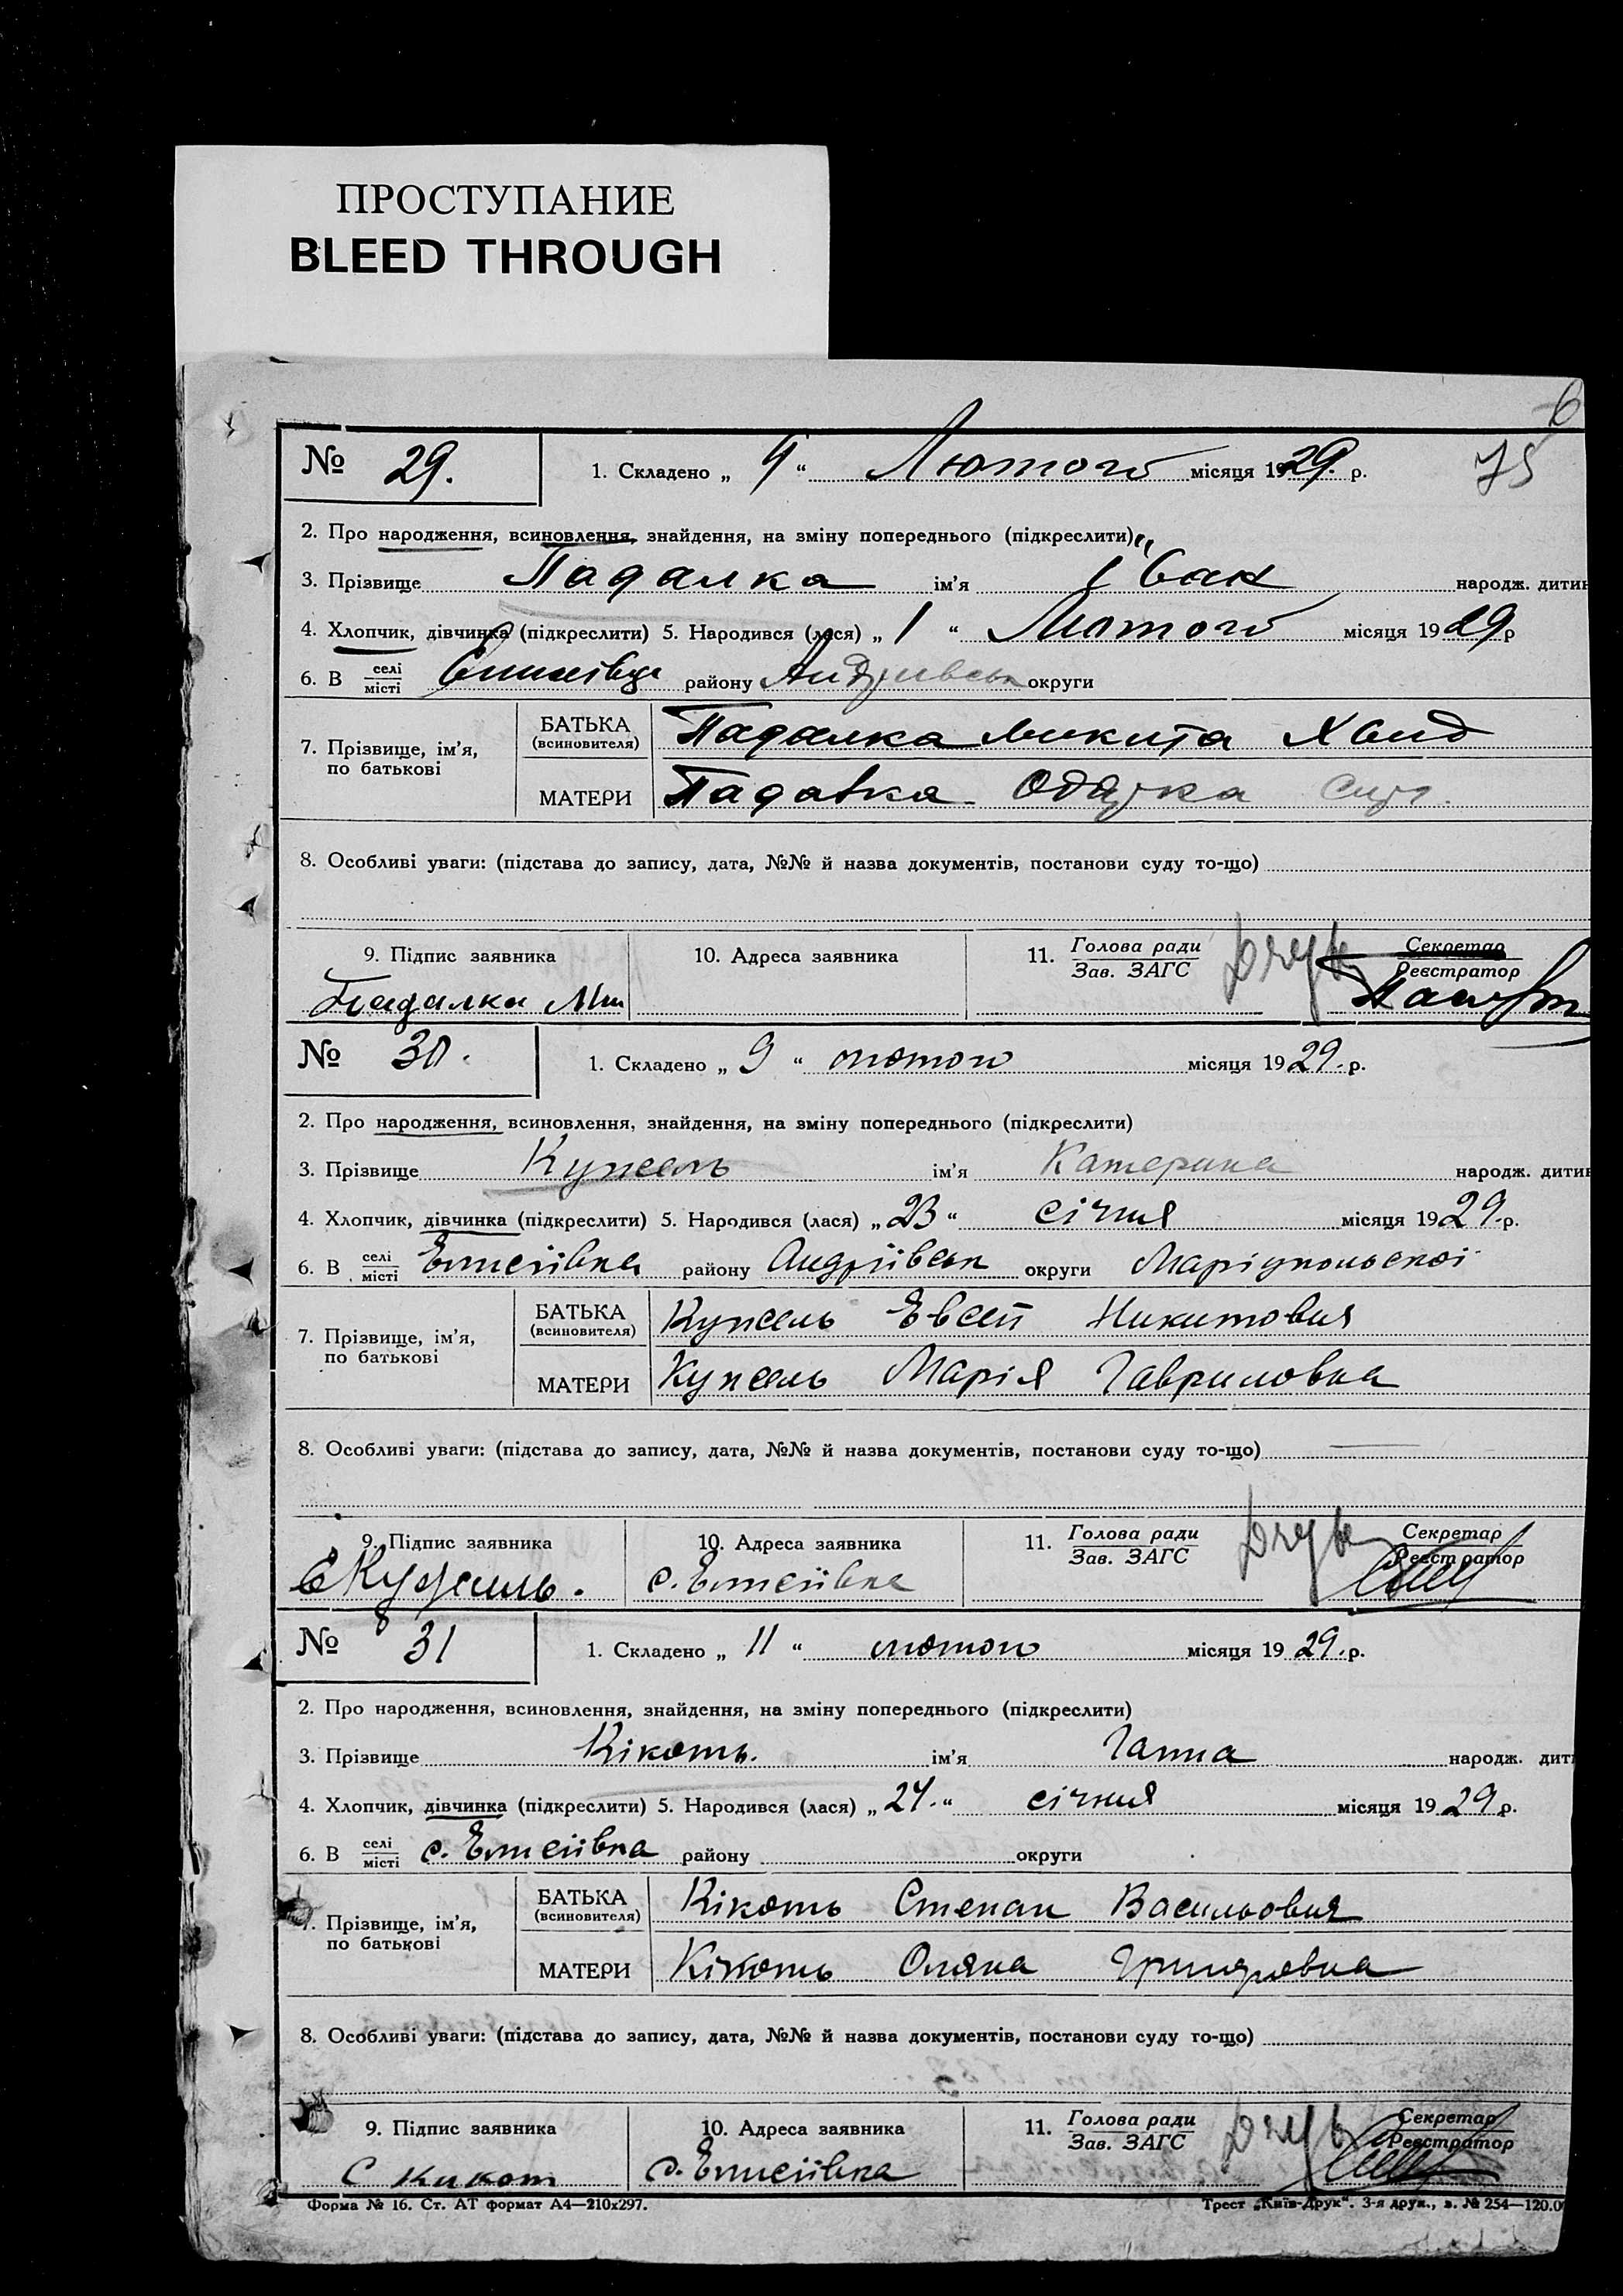 ПРОСТУПАНИЕ
BLEED THROUGH
6
75
№ 29. 1. Складено „ 9 “ Лютого місяця 1929. р.
2. Про народження, всиновлення, знайдення, на зміну попереднього (підкреслити)
3. Прізвище Падалка ім’я Іван народж. дитин
4. Хлопчик, дівчинка (підкреслити) 5. Народився (лася) „ 1 “ Лютого місяця 1929 р
6. В селі/місті району Андрівськ округи
7. Прізвище, ім’я, по батькові
БАТЬКА (всиновителя) Падалка Микита
МАТЕРИ Падавка Одарка
8. Особливі уваги: (підстава до запису, дата, №№ й назва документів, постанови суду то-що)
9. Підпис заявника 10. Адреса заявника 11. Голова ради/Зав. ЗАГС Секретар/Реєстратор
Падалка Ми
№ 30. 1. Складено „ 9 “ лютого місяця 1929. р.
2. Про народження, всиновлення, знайдення, на зміну попереднього (підкреслити)
3. Прізвище Кужель ім’я Катерина народж. дитин
4. Хлопчик, дівчинка (підкреслити) 5. Народився (лася) „ 23 “ січня місяця 1929. р.
6. В селі/місті Елисеївка району Андріївськ округи Маріупольської
7. Прізвище, ім’я, по батькові
БАТЬКА (всиновителя) Кужель Евсей Никитович
МАТЕРИ Кужель Марія Гавриловна
8. Особливі уваги: (підстава до запису, дата, №№ й назва документів, постанови суду то-що)
9. Підпис заявника 10. Адреса заявника 11. Голова ради/Зав. ЗАГС Секретар/Реєстратор
Е Кужель. с. Елисеївка
№ 31 1. Складено „ 11 “ лютого місяця 1929. р.
2. Про народження, всиновлення, знайдення, на зміну попереднього (підкреслити)
3. Прізвище Кікоть. ім’я Ганна народж. дити
4. Хлопчик, дівчинка (підкреслити) 5. Народився (лася) „ 24. “ січня місяця 1929 р.
6. В селі/місті с. Елисеївка району округи
7. Прізвище, ім’я, по батькові
БАТЬКА (всиновителя) Кікоть Степан Васильович
МАТЕРИ Кікоть Оляна Григоровна
8. Особливі уваги: (підстава до запису, дата, №№ й назва документів, постанови суду то-що)
9. Підпис заявника 10. Адреса заявника 11. Голова ради/Зав. ЗАГС Секретар/Реєстратор
С Кикот с. Елисеївка
Форма № 16. Ст. АТ формат А4—210х297. Трест „Київ-Друк“. 3-я друк., з. № 254—120.0